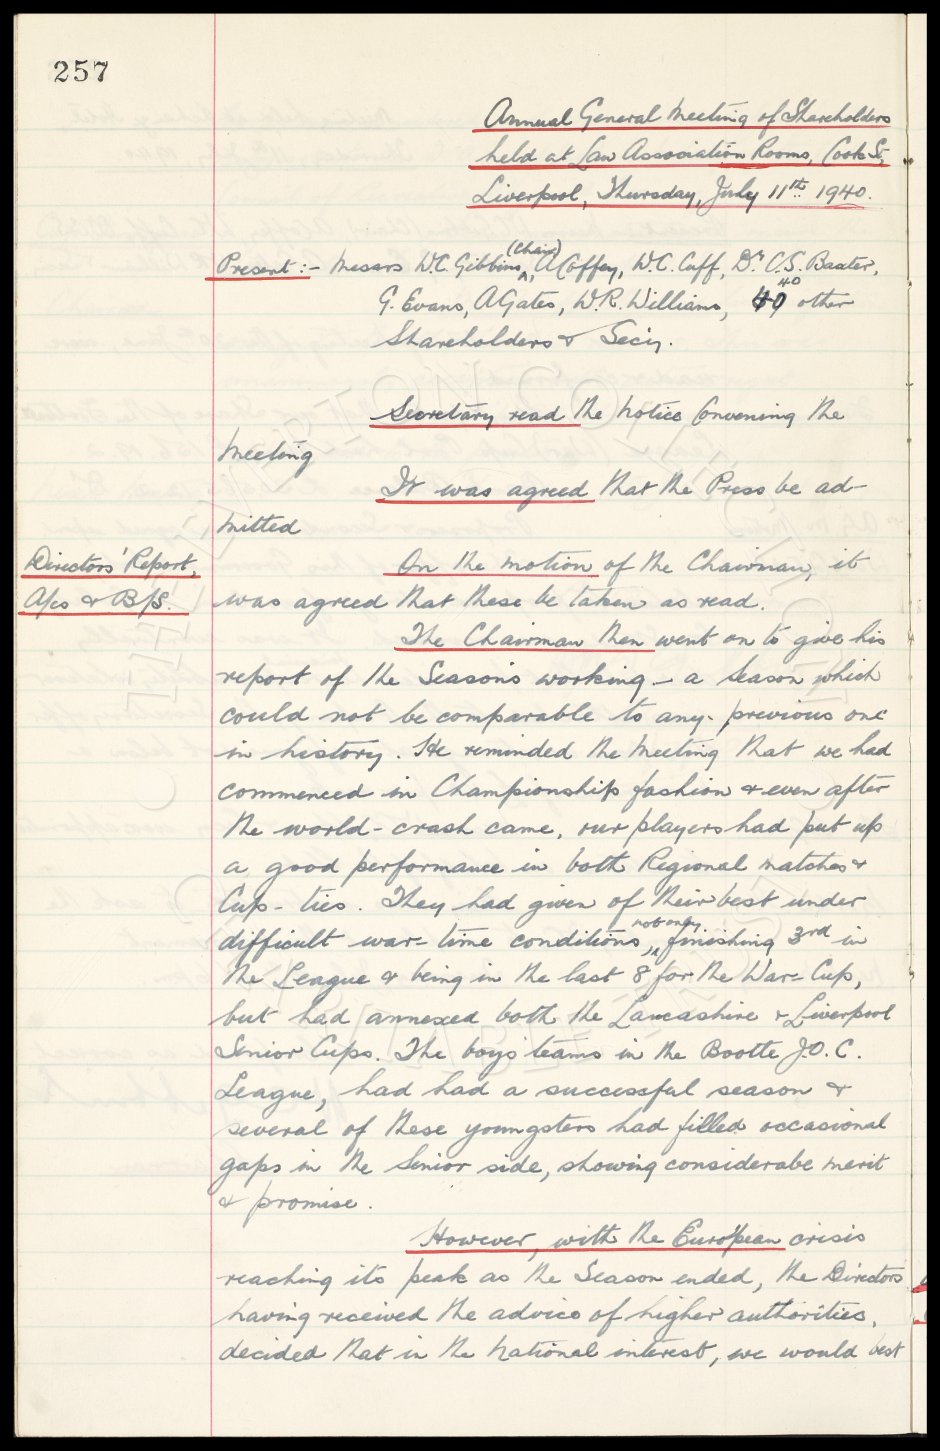 257
Annual General Meeting of Shareholders
held at Law Association Rooms, Cook St,
Liverpool, Thursday, July 11th 1940.
Present:- Messrs W.C. Gibbins (Chair), A Coffey, W.C. Cuff, Dr. C.S. Baxter,
G. Evans, A Gates, W.R. Williams, 40 other
Shareholders & Secy.
Secretary read the notice Convening the
meeting
It was agreed that the Press be ad-
mitted
Directors' Report,
A/cs & B/S.
On the motion of the Chairman, it
was agreed that these be taken as read.
The Chairman then went on to give his
report of the Season's working - a Season which
could not be comparable to any previous one
in history. He reminded the Meeting that we had
commenced in Championship fashion & even after
the world-crash came, our players had put up
a good performance in both Regional matches &
Cup-ties. They had given of their best under
difficult war-time conditions, not only finishing 3rd in
the League & being in the last 8 for the War-Cup,
but had annexed both the Lancashire & Liverpool
Senior Cups. The boys' teams in the Bootle J.O.C.
League, had had a successful season &
several of these youngsters had filled occasional
gaps in the Senior side, showing considerabe merit
& promise.
However, with the European crisis
reaching its peak as the Season ended, the Directors
having received the advice of higher authorities,
decided that in the National interest, we would best